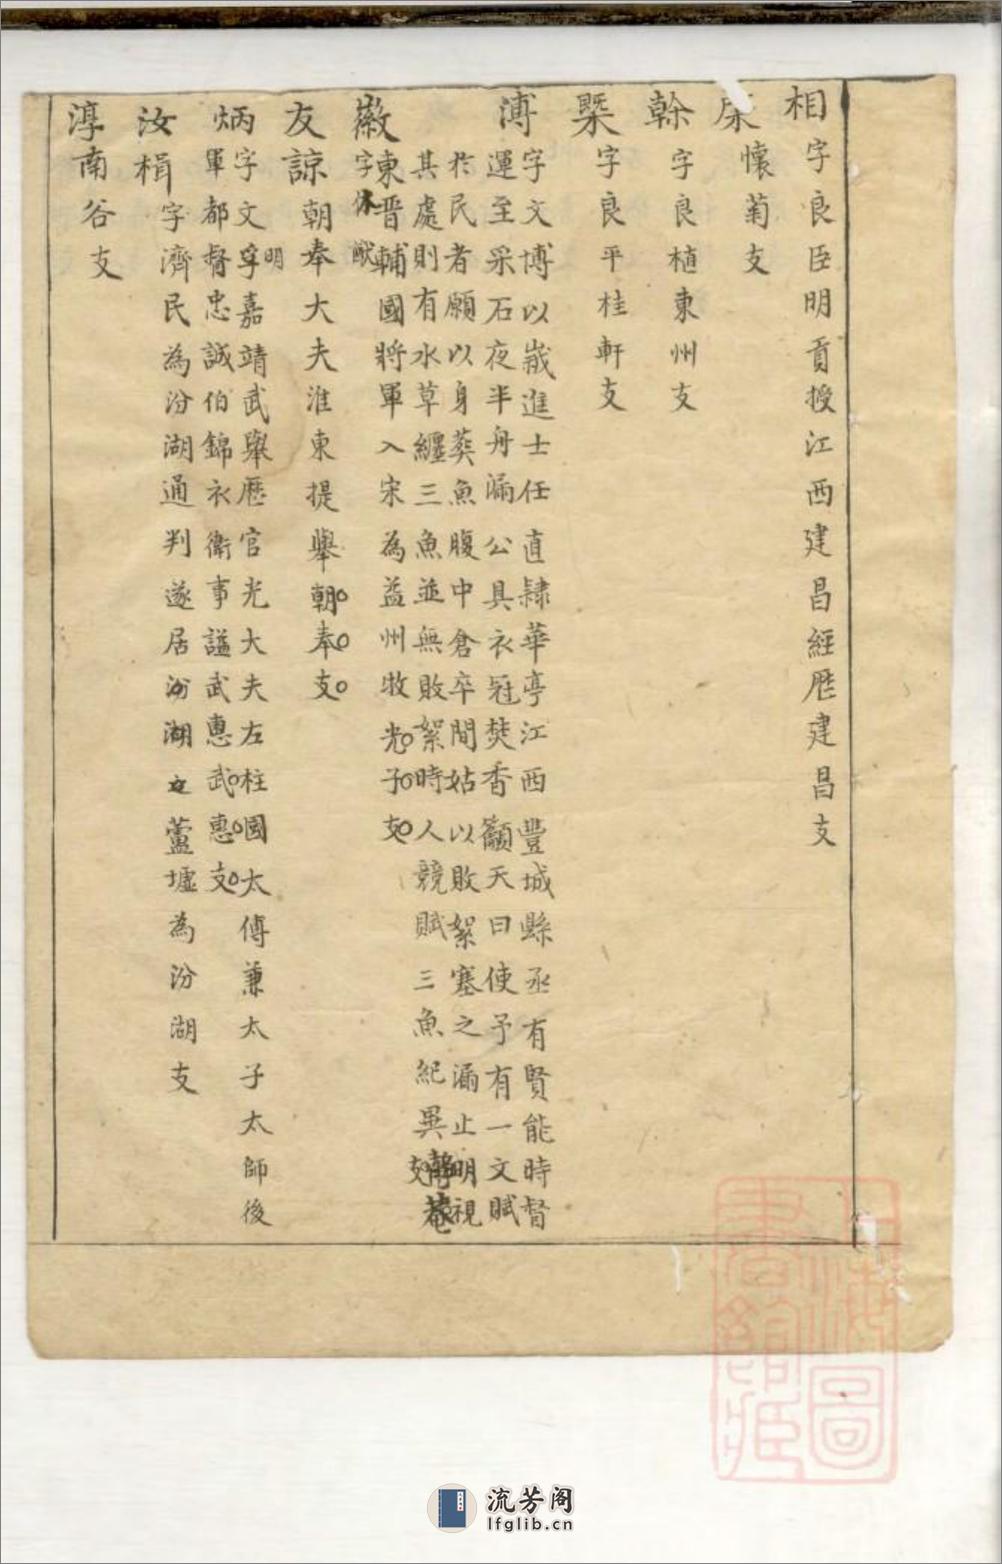 相字良臣明貢授江西建昌經歷建昌支
懷菊支
榦字良植東州支
槩字良平桂軒支
溥字文博以歲進士任直隸華亭江西豐城縣丞有賢能時督
運至采石夜半舟漏公具衣冠焚香籲天曰使予有一文賦
於民者願以身葬魚腹中倉卒間姑以敗絮塞之漏止明視
其處則有水草纒三魚並無敗絮時人競賦三魚紀異
菴支
徽字休猷
東晋輔國將軍入宋為益州牧光子支
友諒朝奉大夫淮東提舉朝奉支
炳字文孚明嘉靖武舉歷官光大夫左柱國太傅兼太子太師後
軍都督忠誠伯錦衣衛事謚武惠武惠支
汝楫字濟民為汾湖通判遂居汾湖之蘆墟為汾湖支
淳南谷支
上海圖書館藏
流芳阁
lfglib.cn